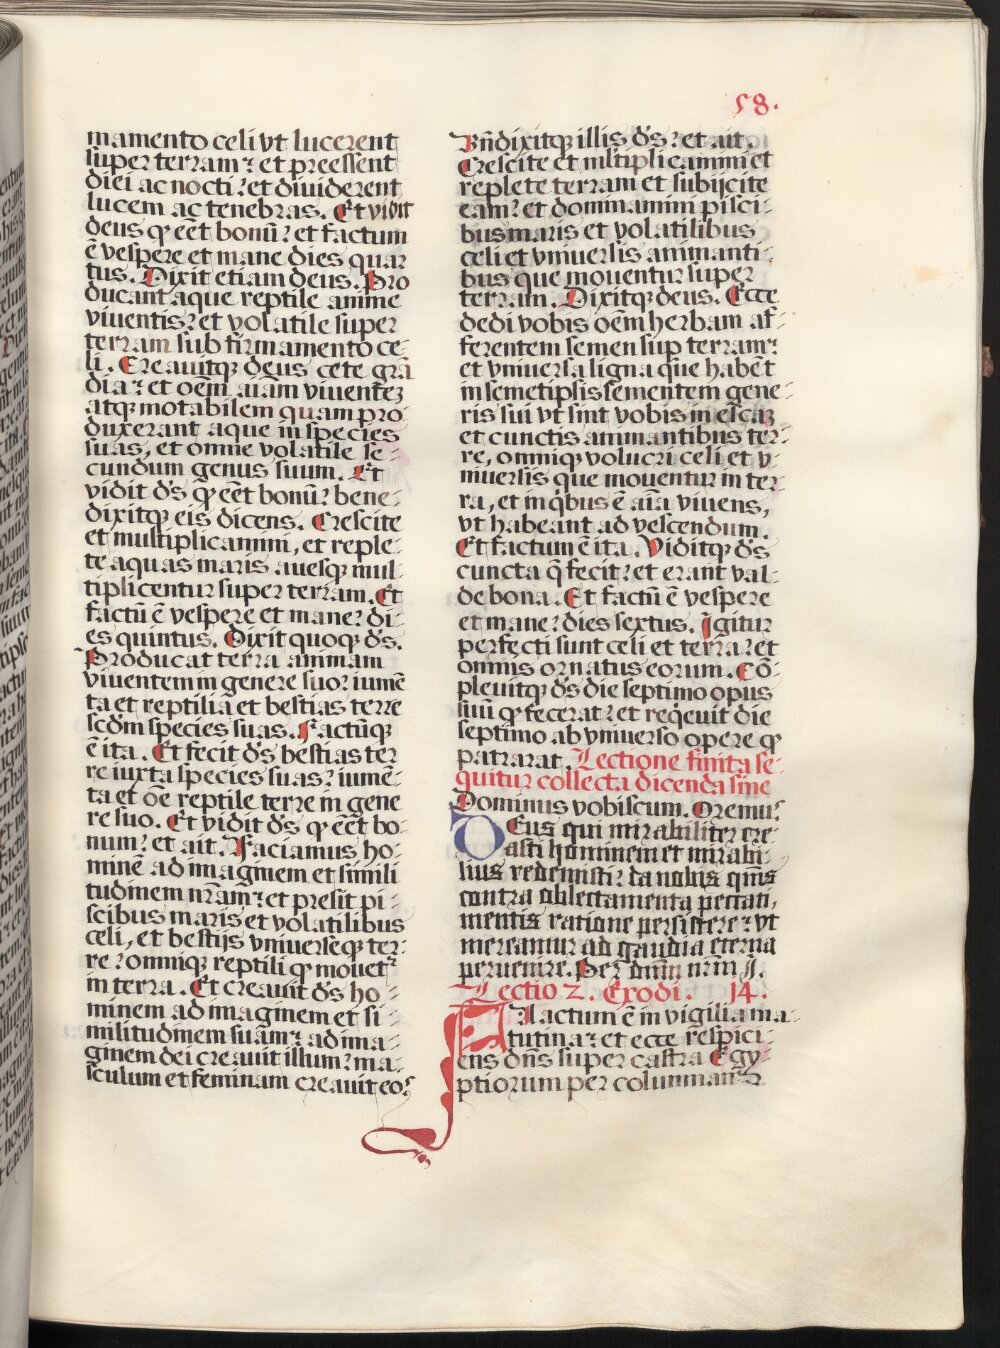 58.
mamento celi vt lucerent
super terram: et preessent
diei ac nocti: et diuiderent
lucem ac tenebras. Et vidit
deus q̄ eēt bonū: et factum
ē vespere et mane dies quar
tus. Dixit etiam deus. Pro
ducant aque reptile anime
viuentis: et volatile super
terram sub firmamento ce-
li. Creauitq̄ deus cete grā
dia: et oēm aīam viuentez
atq̄ motabilem quam pro-
duxerant aque in species
suas, et omne volatile se-
cundum genus suum. Et
vidit ds̄ q̄ eēt bonū: bene-
dixitq̄ eis dicens. Crescite
et multiplicamini, et reple-
te aquas maris auesq̄ mul-
tiplicentur super terram. Et
factū ē vespere et mane: di-
es quintus. Dixit quoq̄ ds̄.
Producat terra animam
viuentem in genere suo: iumē
ta et reptilia et bestias terre
scdm̄ species suas. Factūq̄
ē ita. Et fecit ds̄ bestias ter
re iuxta species suas: iumē-
ta et oē reptile terre in gene
re suo. Et vidit ds̄ q̄ eēt bo-
num: et ait. Faciamus ho-
minē ad imaginem et simili
tudinem nr̄am: et presit pi-
scibus maris et volatilibus
celi, et bestijs vniuerseq̄ ter-
re: omniq̄ reptili q̄ mouetᷣ
in terra. Et creauit ds̄ ho-
minem ad imaginem et si-
militudinem suam: ad ima-
ginem dei creauit illum: ma-
sculum et feminam creauit eos.
Bn̄dixitq̄ illis ds̄: et ait.
Crescite et mltiplicamini et
replete terram et subijcite
eam: et dominamini pisci-
bus maris et volatilibus
celi et vniuersis animanti-
bus que mouentur super
terram. Dixitq̄ deus. Ecce
dedi vobis oēm herbam af-
ferentem semen sup terram:
et vniuersa ligna que habēt
in semetipsis sementem gene-
ris sui vt sint vobis in escaz
et cunctis animantibus ter-
re, omniq̄ volucri celi et v-
niuersis que mouentur in ter-
ra, et in q̄bus ē aīa viuens,
vt habeant ad vescendum.
Et factum ē ita. Viditq̄ ds̄
cuncta q̄ fecit: et erant val-
de bona. Et factū ē vespere
et mane: dies sextus. Igitur
perfecti sunt celi et terra: et
omnis ornatus eorum. Cō-
pleuitq̄ ds̄ die septimo opus
suū q̄ fecerat: et req̄euit die
septimo ab vniuerso opere q̄
patrarat. Lectione finita se-
quitur collecta dicenda sine
Dominus vobiscum. Oremus.
Deus qui mirabiliter cre-
asti hominem et mirabi-
lius redemisti: da nobis qm̄s
contra oblectamenta peccati,
mentis ratione persistere: vt
mereamur ad gaudia eterna
peruenire. Per dnm̄ nrm̄ J.
Lectio 2. Exodi. 14.
Factum ē in vigilia ma-
tutina: et ecce respici-
ens dn̄s super castra Egy-
ptiorum per columnam